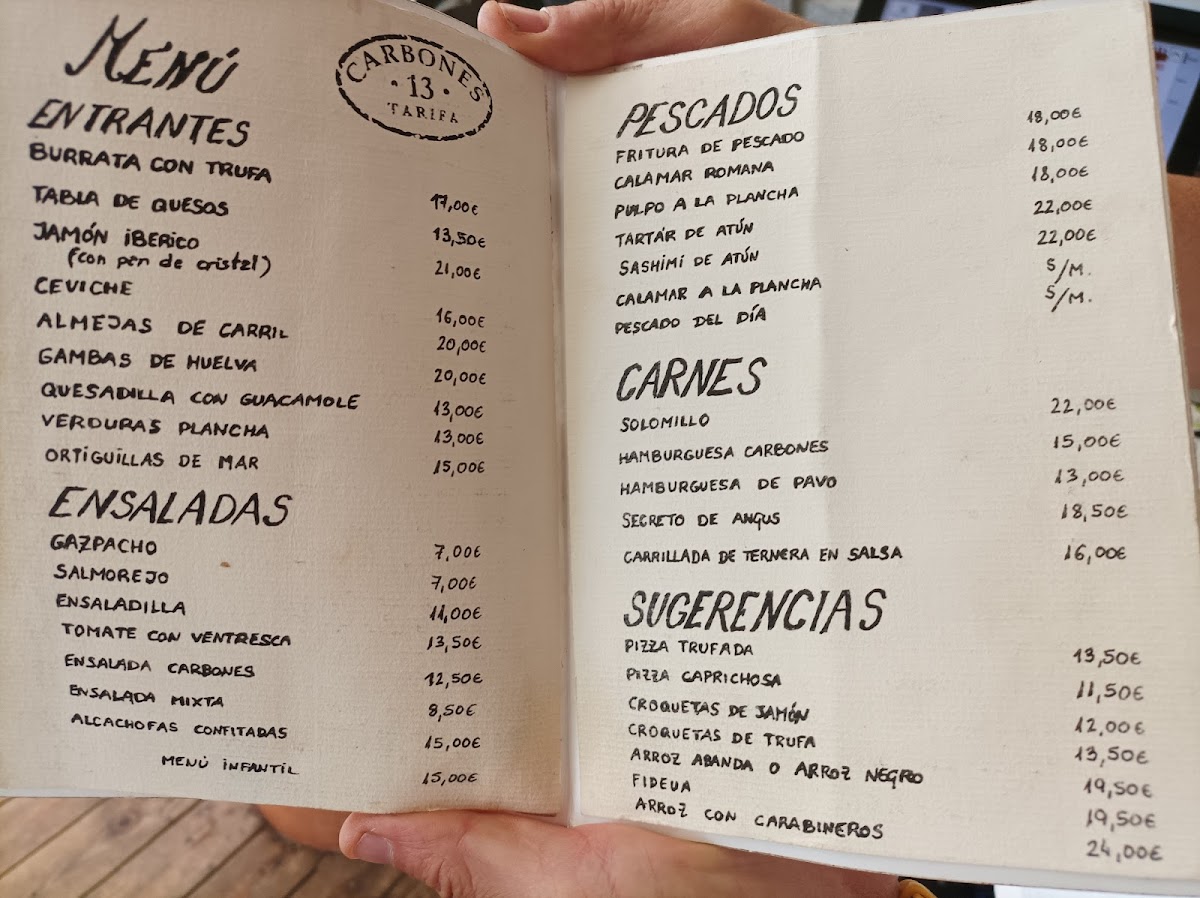 MENÚ
CARBONES
· 13 ·
TARIFA
ENTRANTES
BURRATA CON TRUFA 17,00€
TABLA DE QUESOS 13,50€
JAMÓN IBERICO 21,00€
(con pan de cristal)
CEVICHE 16,00€
ALMEJAS DE CARRIL 20,00€
GAMBAS DE HUELVA 20,00€
QUESADILLA CON GUACAMOLE 13,00€
VERDURAS PLANCHA 13,00€
ORTIGUILLAS DE MAR 15,00€
ENSALADAS
GAZPACHO 7,00€
SALMOREJO 7,00€
ENSALADILLA 11,00€
TOMATE CON VENTRESCA 13,50€
ENSALADA CARBONES 12,50€
ENSALADA MIXTA 8,50€
ALCACHOFAS CONFITADAS 15,00€
MENÚ INFANTIL 15,00€
PESCADOS
FRITURA DE PESCADO 18,00€
CALAMAR ROMANA 18,00€
PULPO A LA PLANCHA 18,00€
TARTÁR DE ATÚN 22,00€
SASHIMI DE ATÚN 22,00€
CALAMAR A LA PLANCHA S/M.
PESCADO DEL DÍA S/M.
CARNES
SOLOMILLO 22,00€
HAMBURGUESA CARBONES 15,00€
HAMBURGUESA DE PAVO 13,00€
SECRETO DE ANGUS 18,50€
CARRILLADA DE TERNERA EN SALSA 16,00€
SUGERENCIAS
PIZZA TRUFADA 13,50€
PIZZA CAPRICHOSA 11,50€
CROQUETAS DE JAMÓN 12,00€
CROQUETAS DE TRUFA 13,50€
ARROZ ABANDA O ARROZ NEGRO 19,50€
FIDEUA 19,50€
ARROZ CON CARABINEROS 24,00€